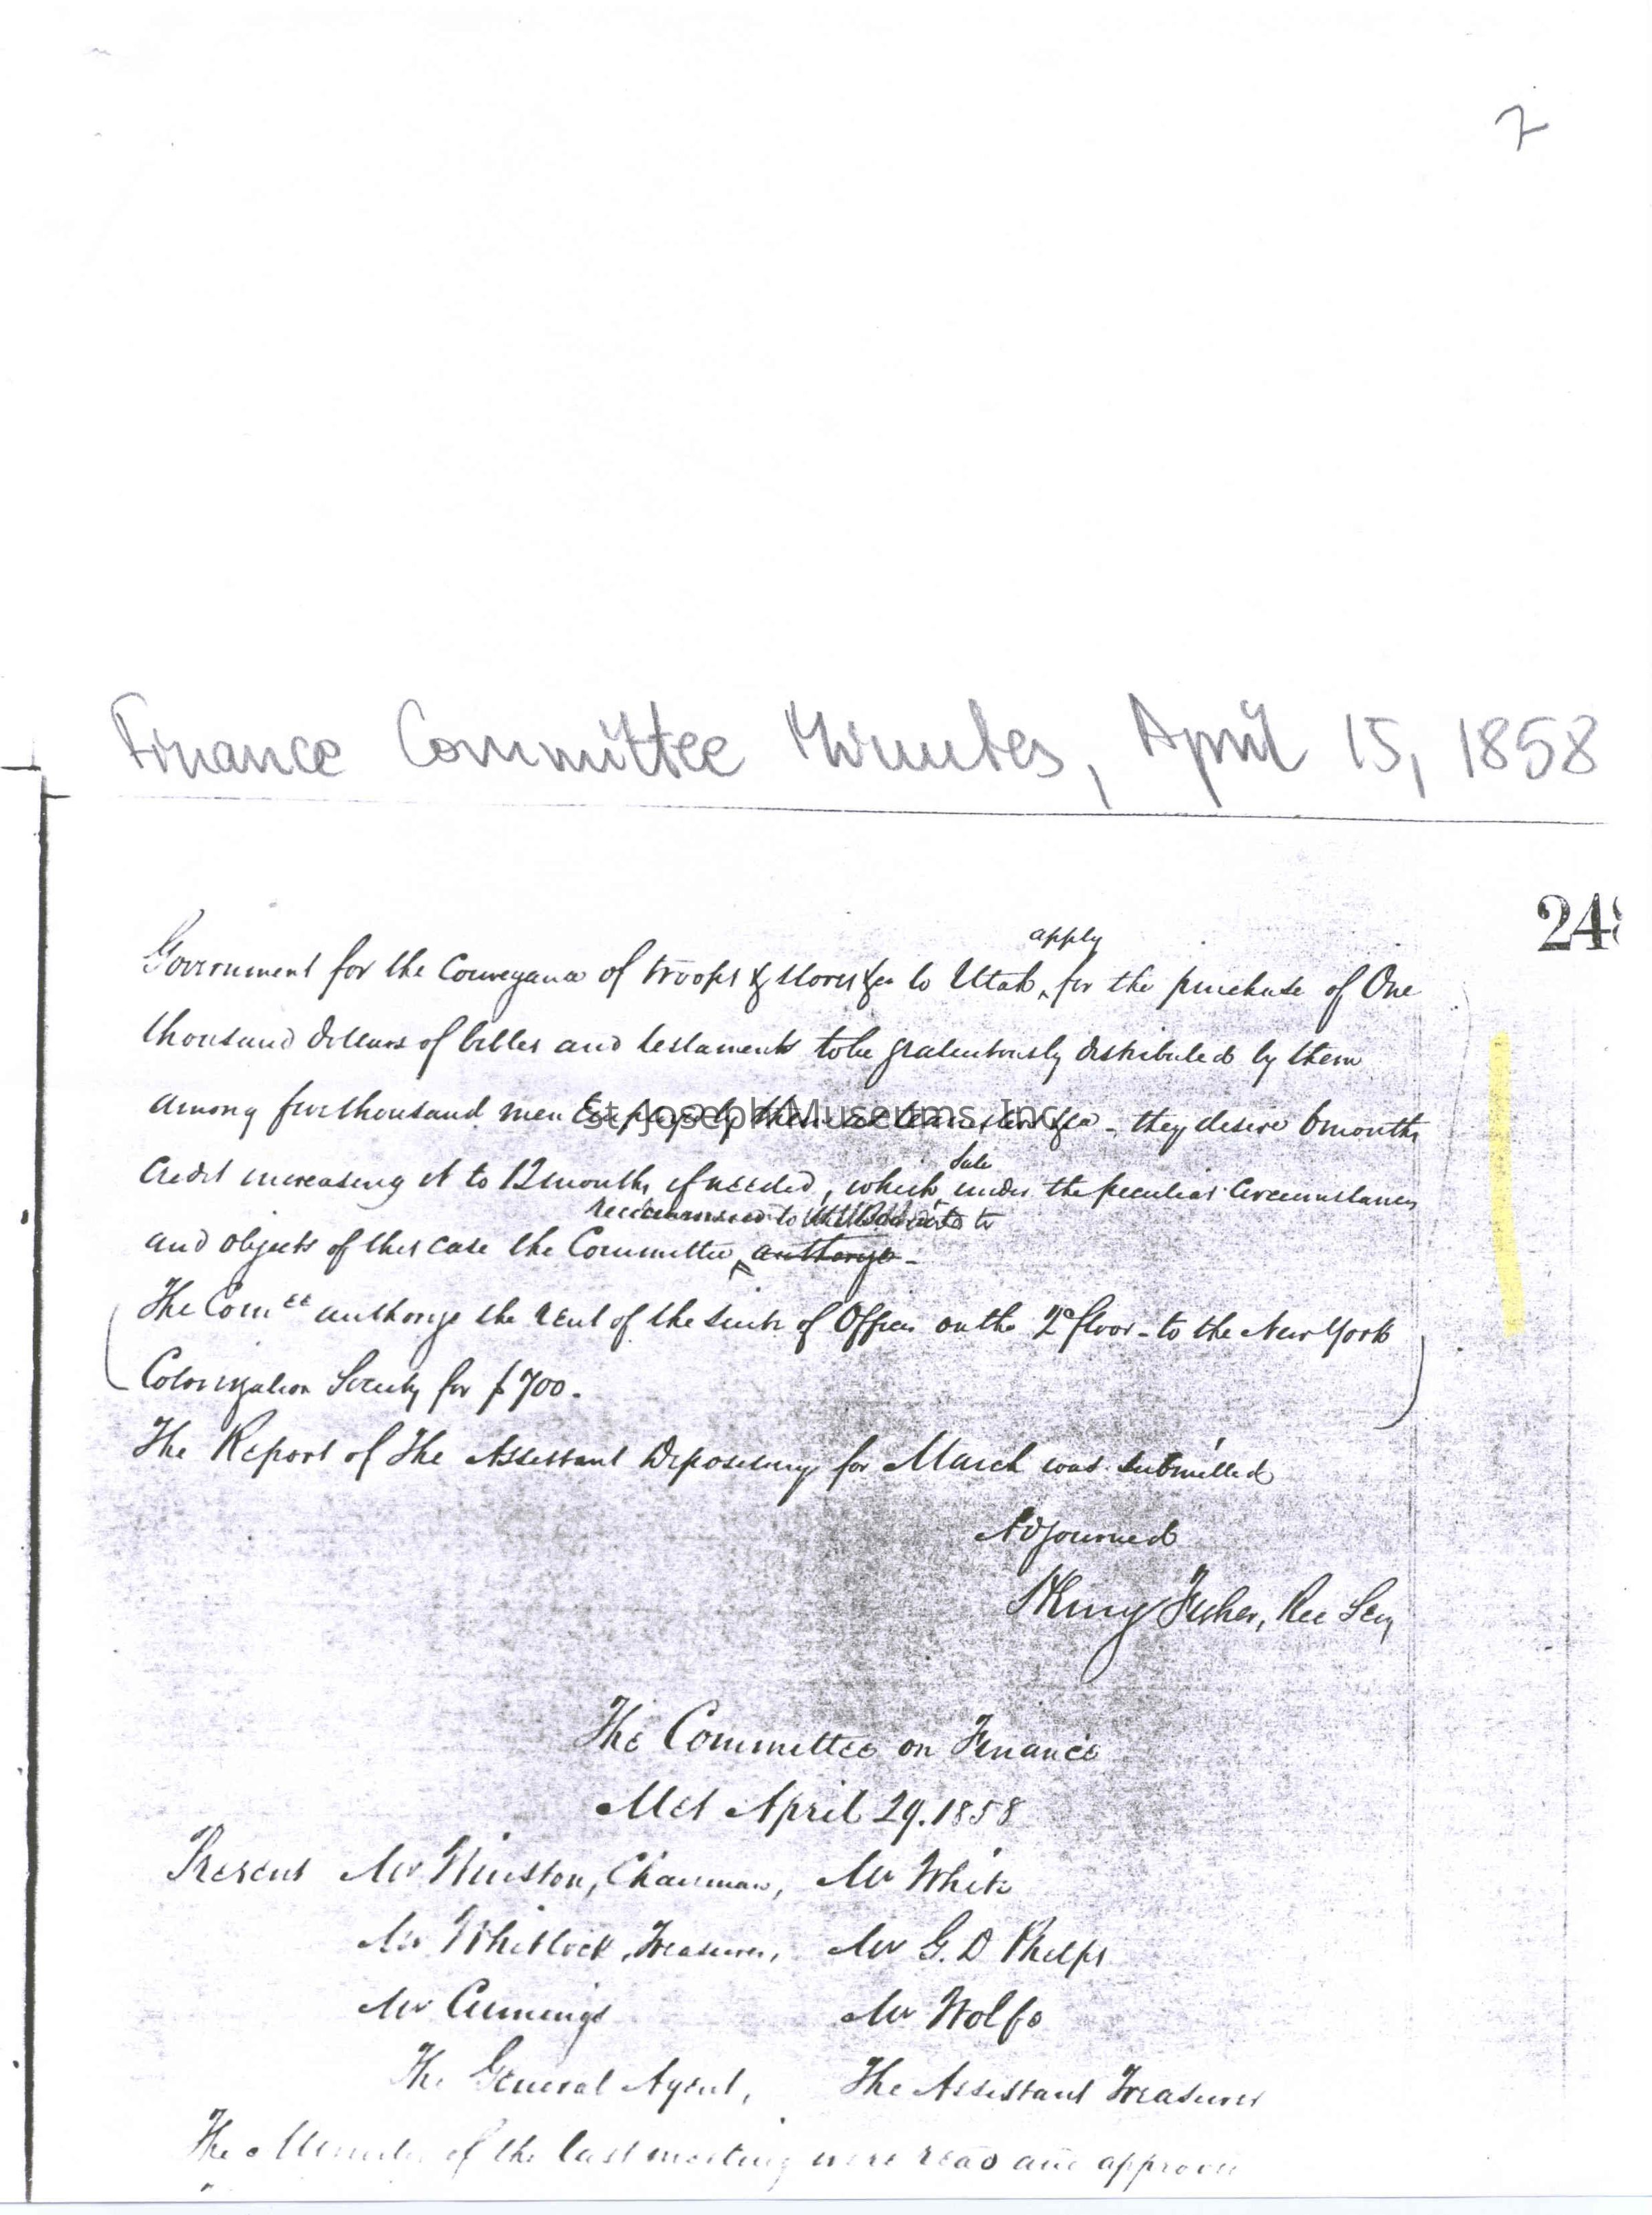 7
Finance Committee Minutes, April 15, 1858
248
apply
Government for the Conveyance of troops & stores &c to Utah, for the purchase of One
thousand dollars of bibles and testaments to be gratuitously distributed by them
among five thousand men Employed by them as teamsters &c - they desire 6 months
St. Joseph Museums, Inc.
Sale
Credit increasing it to 12 months if needed, which under the peculiar Circumstances
recommend to the to
and objects of this case the Committee authorize -
The Comee authorize the rent of the suite of Offices on the 2d floor - to the New York
Colonization Society for $700.
The Report of The Assistant Depositary for March was submitted
Adjourned
Henry Fisher, Rec Secy
The Committee on Finance
Met April 29. 1858
Present Mr Winston, Chairman, Mr White
Mr Whitlock, Treasurer, Mr G. D Phelps
Mr Cummings Mr Wolfe
The General Agent, The Assistant Treasurer
The Minutes of the last meeting were read and approved